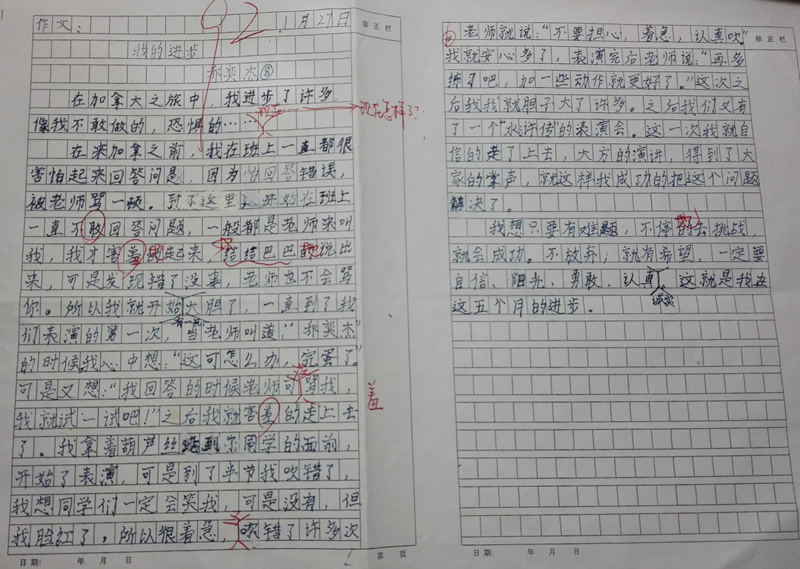 作文： 92 1月27日 修正栏
我的进步
乔奕杰⑧
在加拿大之旅中，我进步了许多，
像我不敢做的，恐惧的……
现在怎样了？
在来加拿之前，我在班上一直都很
害怕起来回答问是，因为怕回答错误，
被老师骂一顿。到了这里之开始在班上
一直不敢回答问题，一般都是老师来叫
我，我才害羞的走来，结结巴巴的说出
来，可是发现错了没事，老师也不会骂
你。所以我就开始大胆了，一直到了我
们表演的第一次，当老师叫道：“乔奕杰”
的时候，我心中想：“这可怎么办，完蛋了。”
可是又想：“我回答的时候老师可没骂我，
我就试一试吧！”之后我就害羞的走上去
羞
了。我拿着葫芦丝 同学的面前，
开始了表演，可是到了半节我吹错了，
我想同学们一定会笑我，可是没有，但
我脸红了。所以很着急，吹错了许多次
日期： 年 月 日 第 页
老师就说：“不要担心，着急，认真吹。” 修正栏
我就安心多了，表演完后老师说：“再多
练习吧，加一些动作就更好了。”这次之
后我我就胆子大了许多。之后我们又有
了一个“水浒传”的表演会。这一次我就自
信的走了上去，大方的演讲，得到了大
家的掌声，就这样我成功的把这个问题
解决了。
我想只要有难题，不停的去挑战，
就会成功。不放弃，就有希望，一定要
自信、阳光、勇敢、认真，这就是我在
这五个月的进步。
日期： 年 月 日